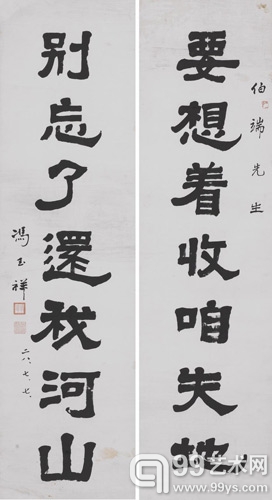 伯端先生
要想着收咱失地
别忘了還我河山
馮玉祥
二八、七、七、
99艺术网
www.99ys.com